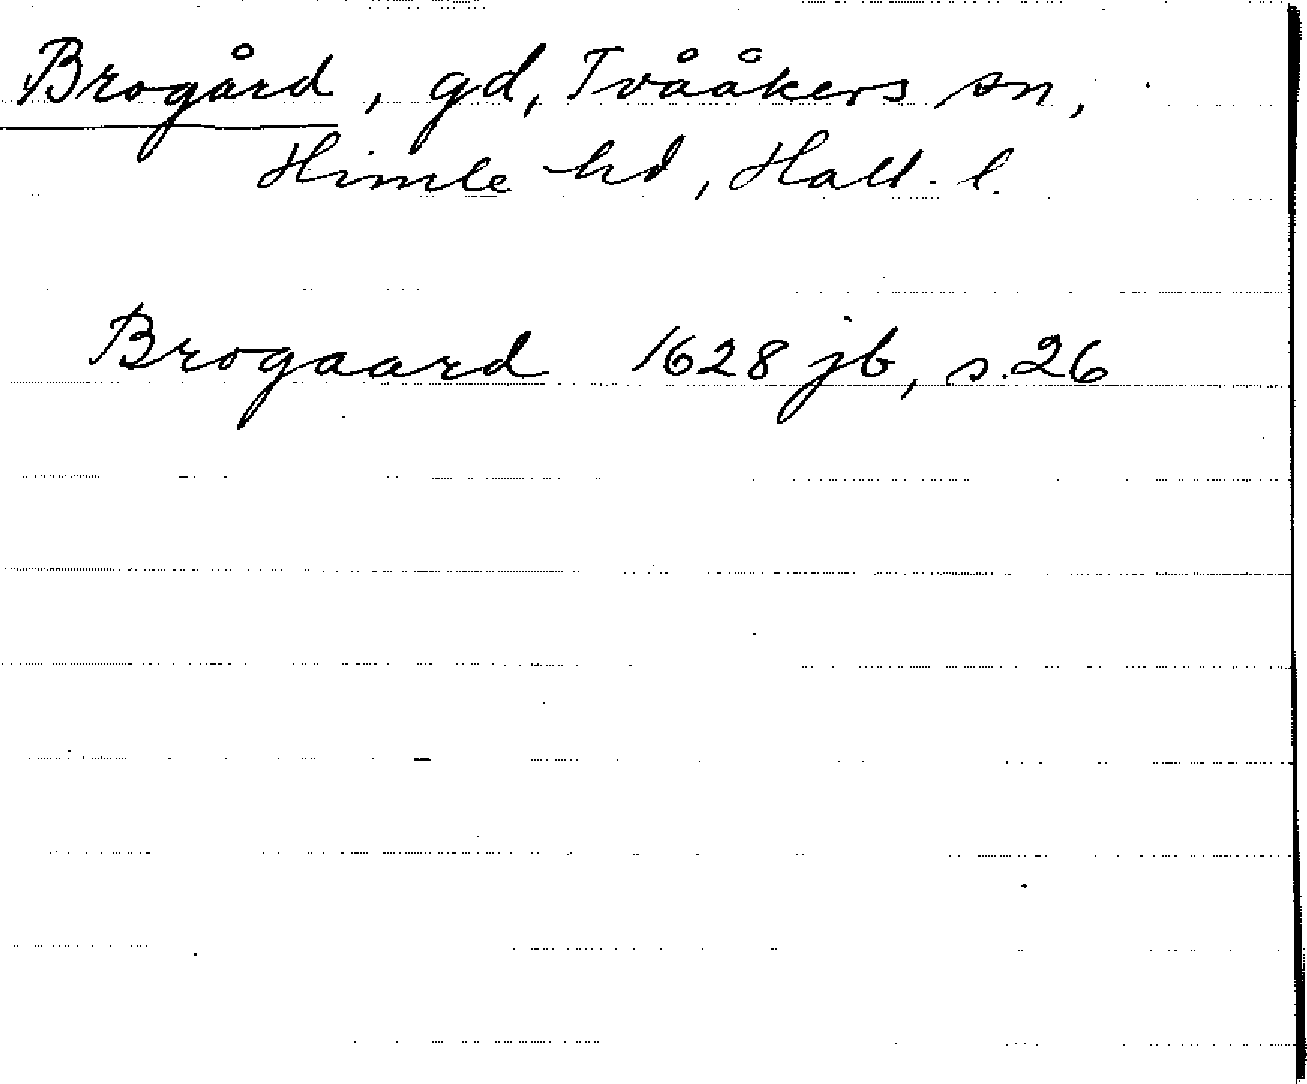 Brogård, gd, Tvååkers sn,
Himle hd, Hall. l.
Brogaard 1628 jb, s. 26